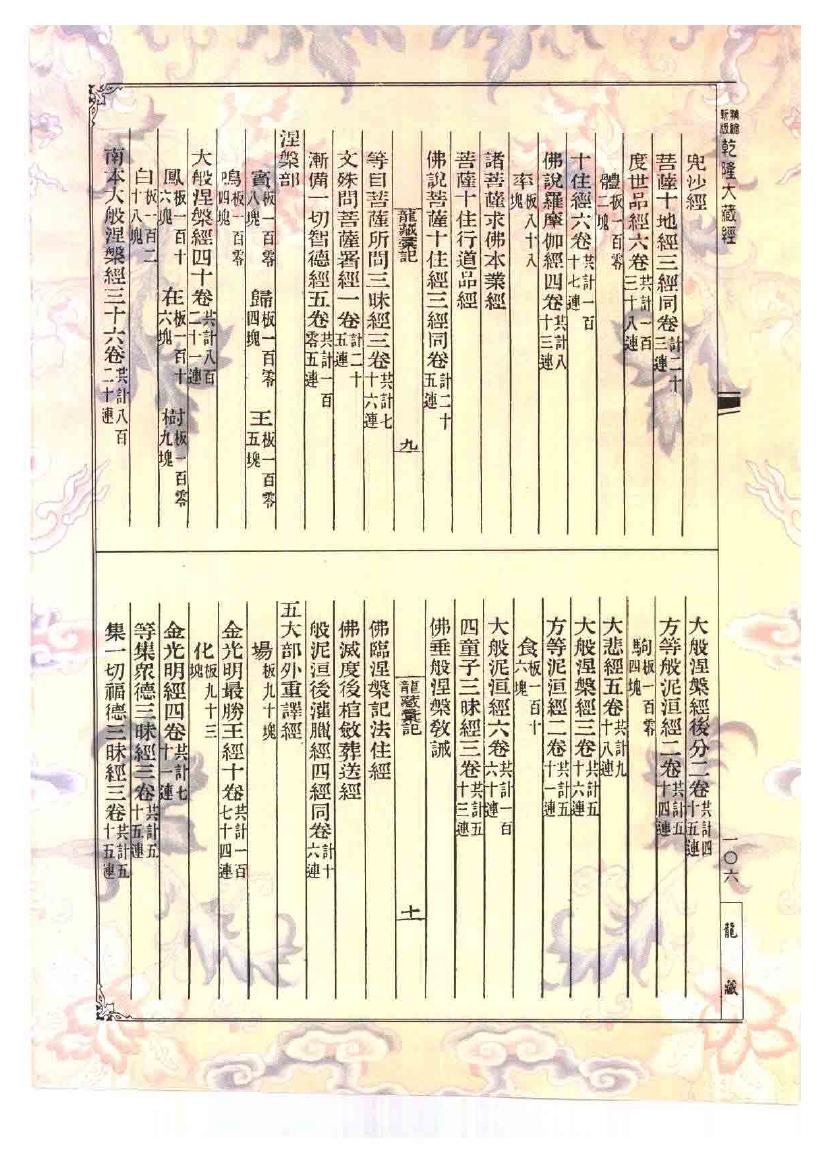 新版精縮 乾隆大藏經
兜沙經
菩薩十地經三經同卷計二十三連
度世品經六卷共計一百三十八連
體板一百零二塊
十住經六卷共計一百十七連
佛說羅摩伽經四卷共計八十三連
率板八十八塊
諸菩薩求佛本業經
菩薩十住行道品經
佛說菩薩十住經三經同卷計二十五連
龍藏彙記 九
等目菩薩所問三昧經三卷共計七十六連
文殊問菩薩署經一卷計二十五連
漸備一切智德經五卷共計一百零五連
涅槃部
賓板一百零八塊 歸板一百零四塊 王板一百零五塊
鳴板一百零四塊
大般涅槃經四十卷共計八百二十一連
鳳板一百十六塊 在板一百十六塊 樹板一百零九塊
白板一百二十八塊
南本大般涅槃經三十六卷共計八百二十連
大般涅槃經後分二卷共計四十五連
方等般泥洹經二卷共計五十四連
駒板一百零四塊
大悲經五卷共計九十八連
大般涅槃經三卷共計五十六連
方等泥洹經二卷共計五十一連
食板一百十六塊
大般泥洹經六卷共計一百六十連
四童子三昧經三卷共計五十三連
佛垂般涅槃教誡
龍藏彙記 十
佛臨涅槃記法住經
佛滅度後棺斂葬送經
般泥洹後灌臘經四經同卷計十六連
五大部外重譯經
場板九十塊
金光明最勝王經十卷共計一百七十四連
化板九十三塊
金光明經四卷共計七十一連
等集衆德三昧經三卷共計五十五連
集一切福德三昧經三卷共計五十五連
一〇六
龍藏